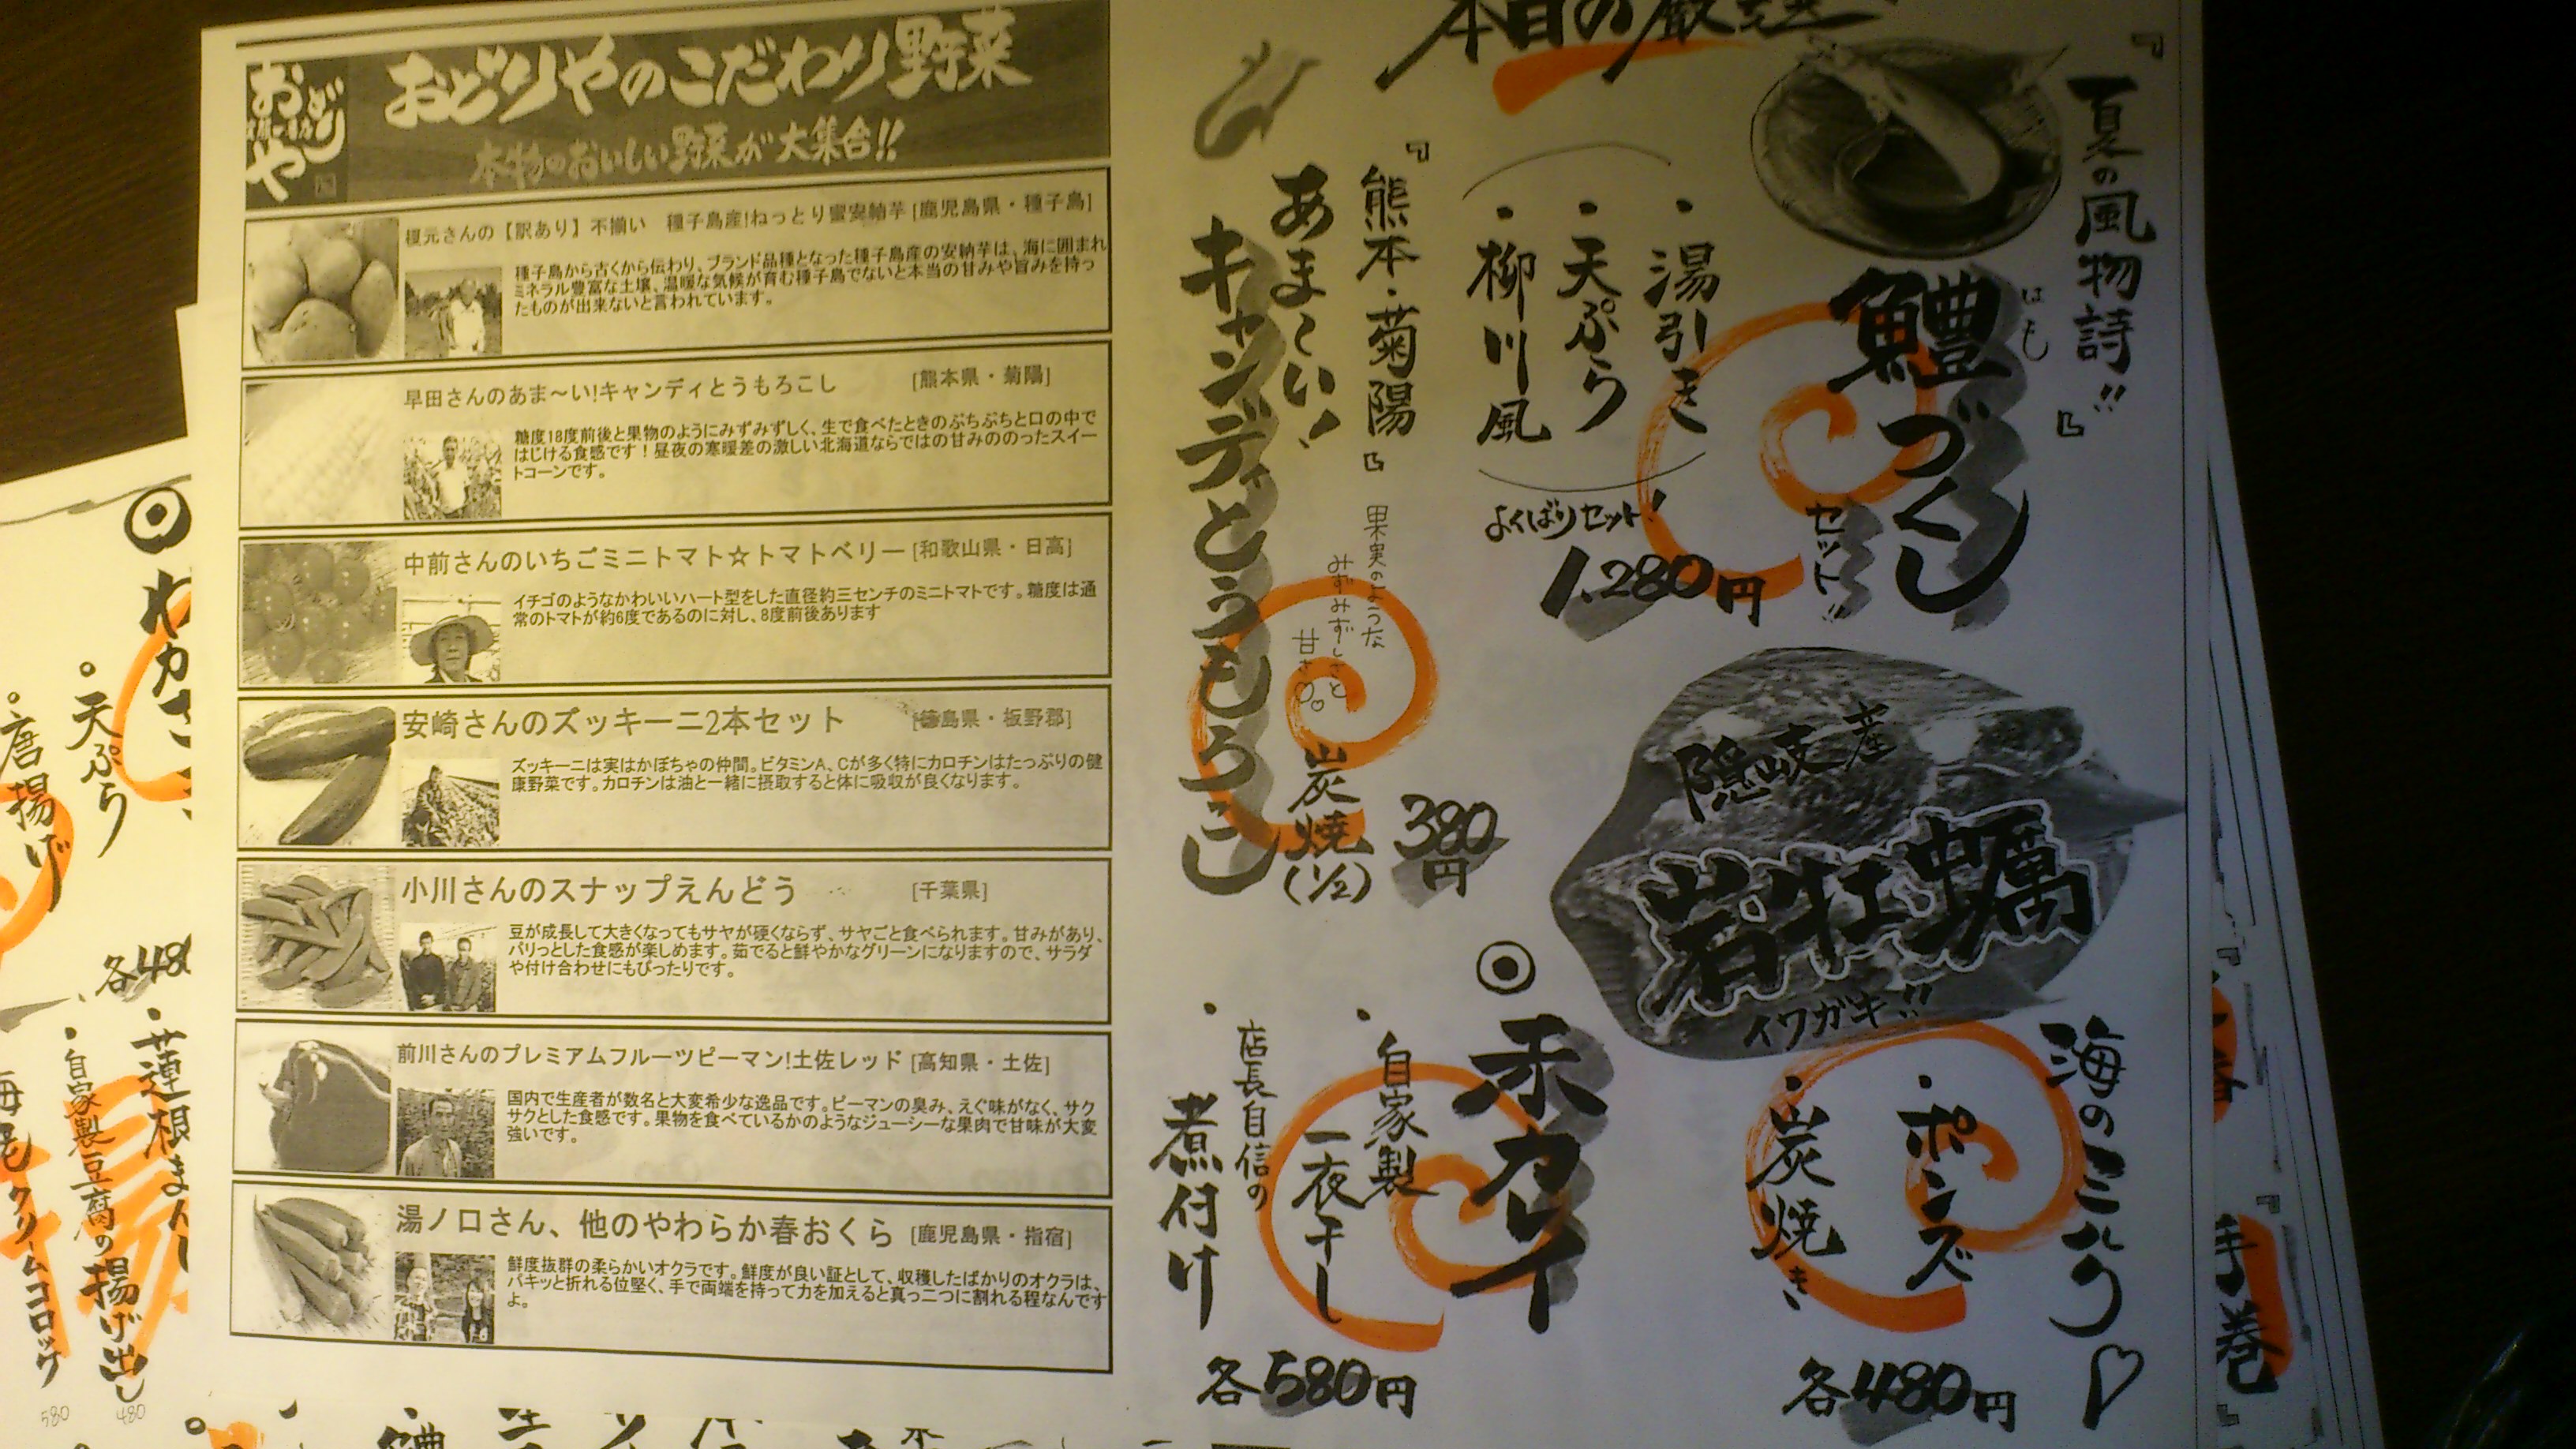 おどりや
おどりやのこだわり野菜
本物のおいしい野菜が大集合!!
榎元さんの【訳あり】不揃い 種子島産!ねっとり蜜安納芋 [鹿児島県・種子島]
種子島から古くから伝わり、ブランド品種となった種子島産の安納芋は、海に囲まれ
ミネラル豊富な土壌、温暖な気候が育む種子島でないと本当の甘みや旨みを持っ
たものが出来ないと言われています。
早田さんのあま～い!キャンディとうもろこし [熊本県・菊陽]
糖度18度前後と果物のようにみずみずしく、生で食べたときのぷちぷちと口の中で
はじける食感です！昼夜の寒暖差の激しい北海道ならではの甘みののったスイー
トコーンです。
中前さんのいちごミニトマト☆トマトベリー [和歌山県・日高]
イチゴのようなかわいいハート型をした直径約三センチのミニトマトです。糖度は通
常のトマトが約6度であるのに対し、8度前後あります
安崎さんのズッキーニ2本セット [徳島県・板野郡]
ズッキーニは実はかぼちゃの仲間。ビタミンA、Cが多く特にカロチンはたっぷりの健
康野菜です。カロチンは油と一緒に摂取すると体に吸収が良くなります。
小川さんのスナップえんどう [千葉県]
豆が成長して大きくなってもサヤが硬くならず、サヤごと食べられます。甘みがあり、
パリっとした食感が楽しめます。茹でると鮮やかなグリーンになりますので、サラダ
や付け合わせにもぴったりです。
前川さんのプレミアムフルーツピーマン!土佐レッド [高知県・土佐]
国内で生産者が数名と大変希少な逸品です。ピーマンの臭み、えぐ味がなく、サク
サクとした食感です。果物を食べているかのようなジューシーな果肉で甘味が大変
強いです。
湯ノ口さん、他のやわらか春おくら [鹿児島県・指宿]
鮮度抜群の柔らかいオクラです。鮮度が良い証として、収穫したばかりのオクラは、
パキッと折れる位堅く、手で両端を持って力を加えると真っ二つに割れる程なんです
よ。
本日の厳選
『夏の風物詩!!』
はも
鱧づくし
セット!!
・湯引き
・天ぷら
・柳川風
よくばりセット!
1,280円
『熊本・菊陽』
あま～い!
キャンディとうもろこし
果実のような
みずみずしさと
甘さ
炭焼
(1/2)
380円
隠岐産
岩牡蠣
イワガキ!!
海のミルク♡
・ポンズ
・炭焼き
各480円
◎赤カレイ
・自家製
一夜干し
・店長自信の
煮付け
各580円
◎わかさ
。天ぷら
。唐揚げ
各480
・蓮根まん
・自家製豆腐の揚げ出し
クリームコロッケ
580
480
『手巻